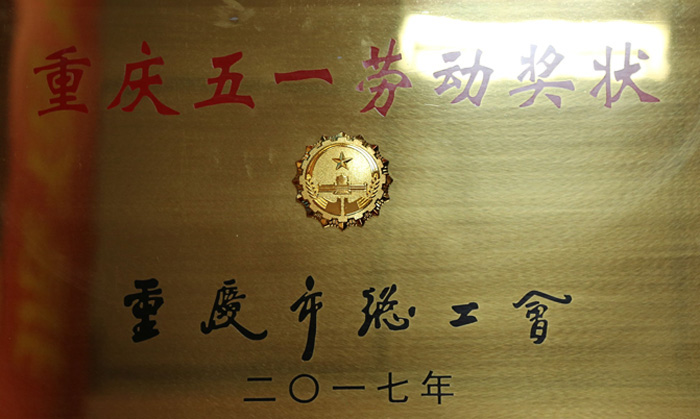 重庆五一劳动奖状
重慶市総工會
二〇一七年